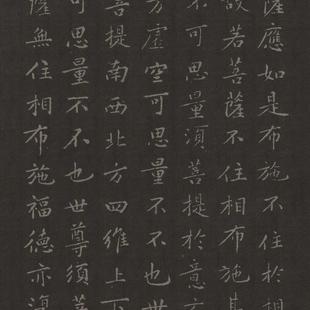 薩應如是布施不住於相
故若菩薩不住相布施其
不可思量須菩提於意云
方虛空可思量不不也世
菩提南西北方四維上下
可思量不不也世尊須菩
薩無住相布施福德亦復